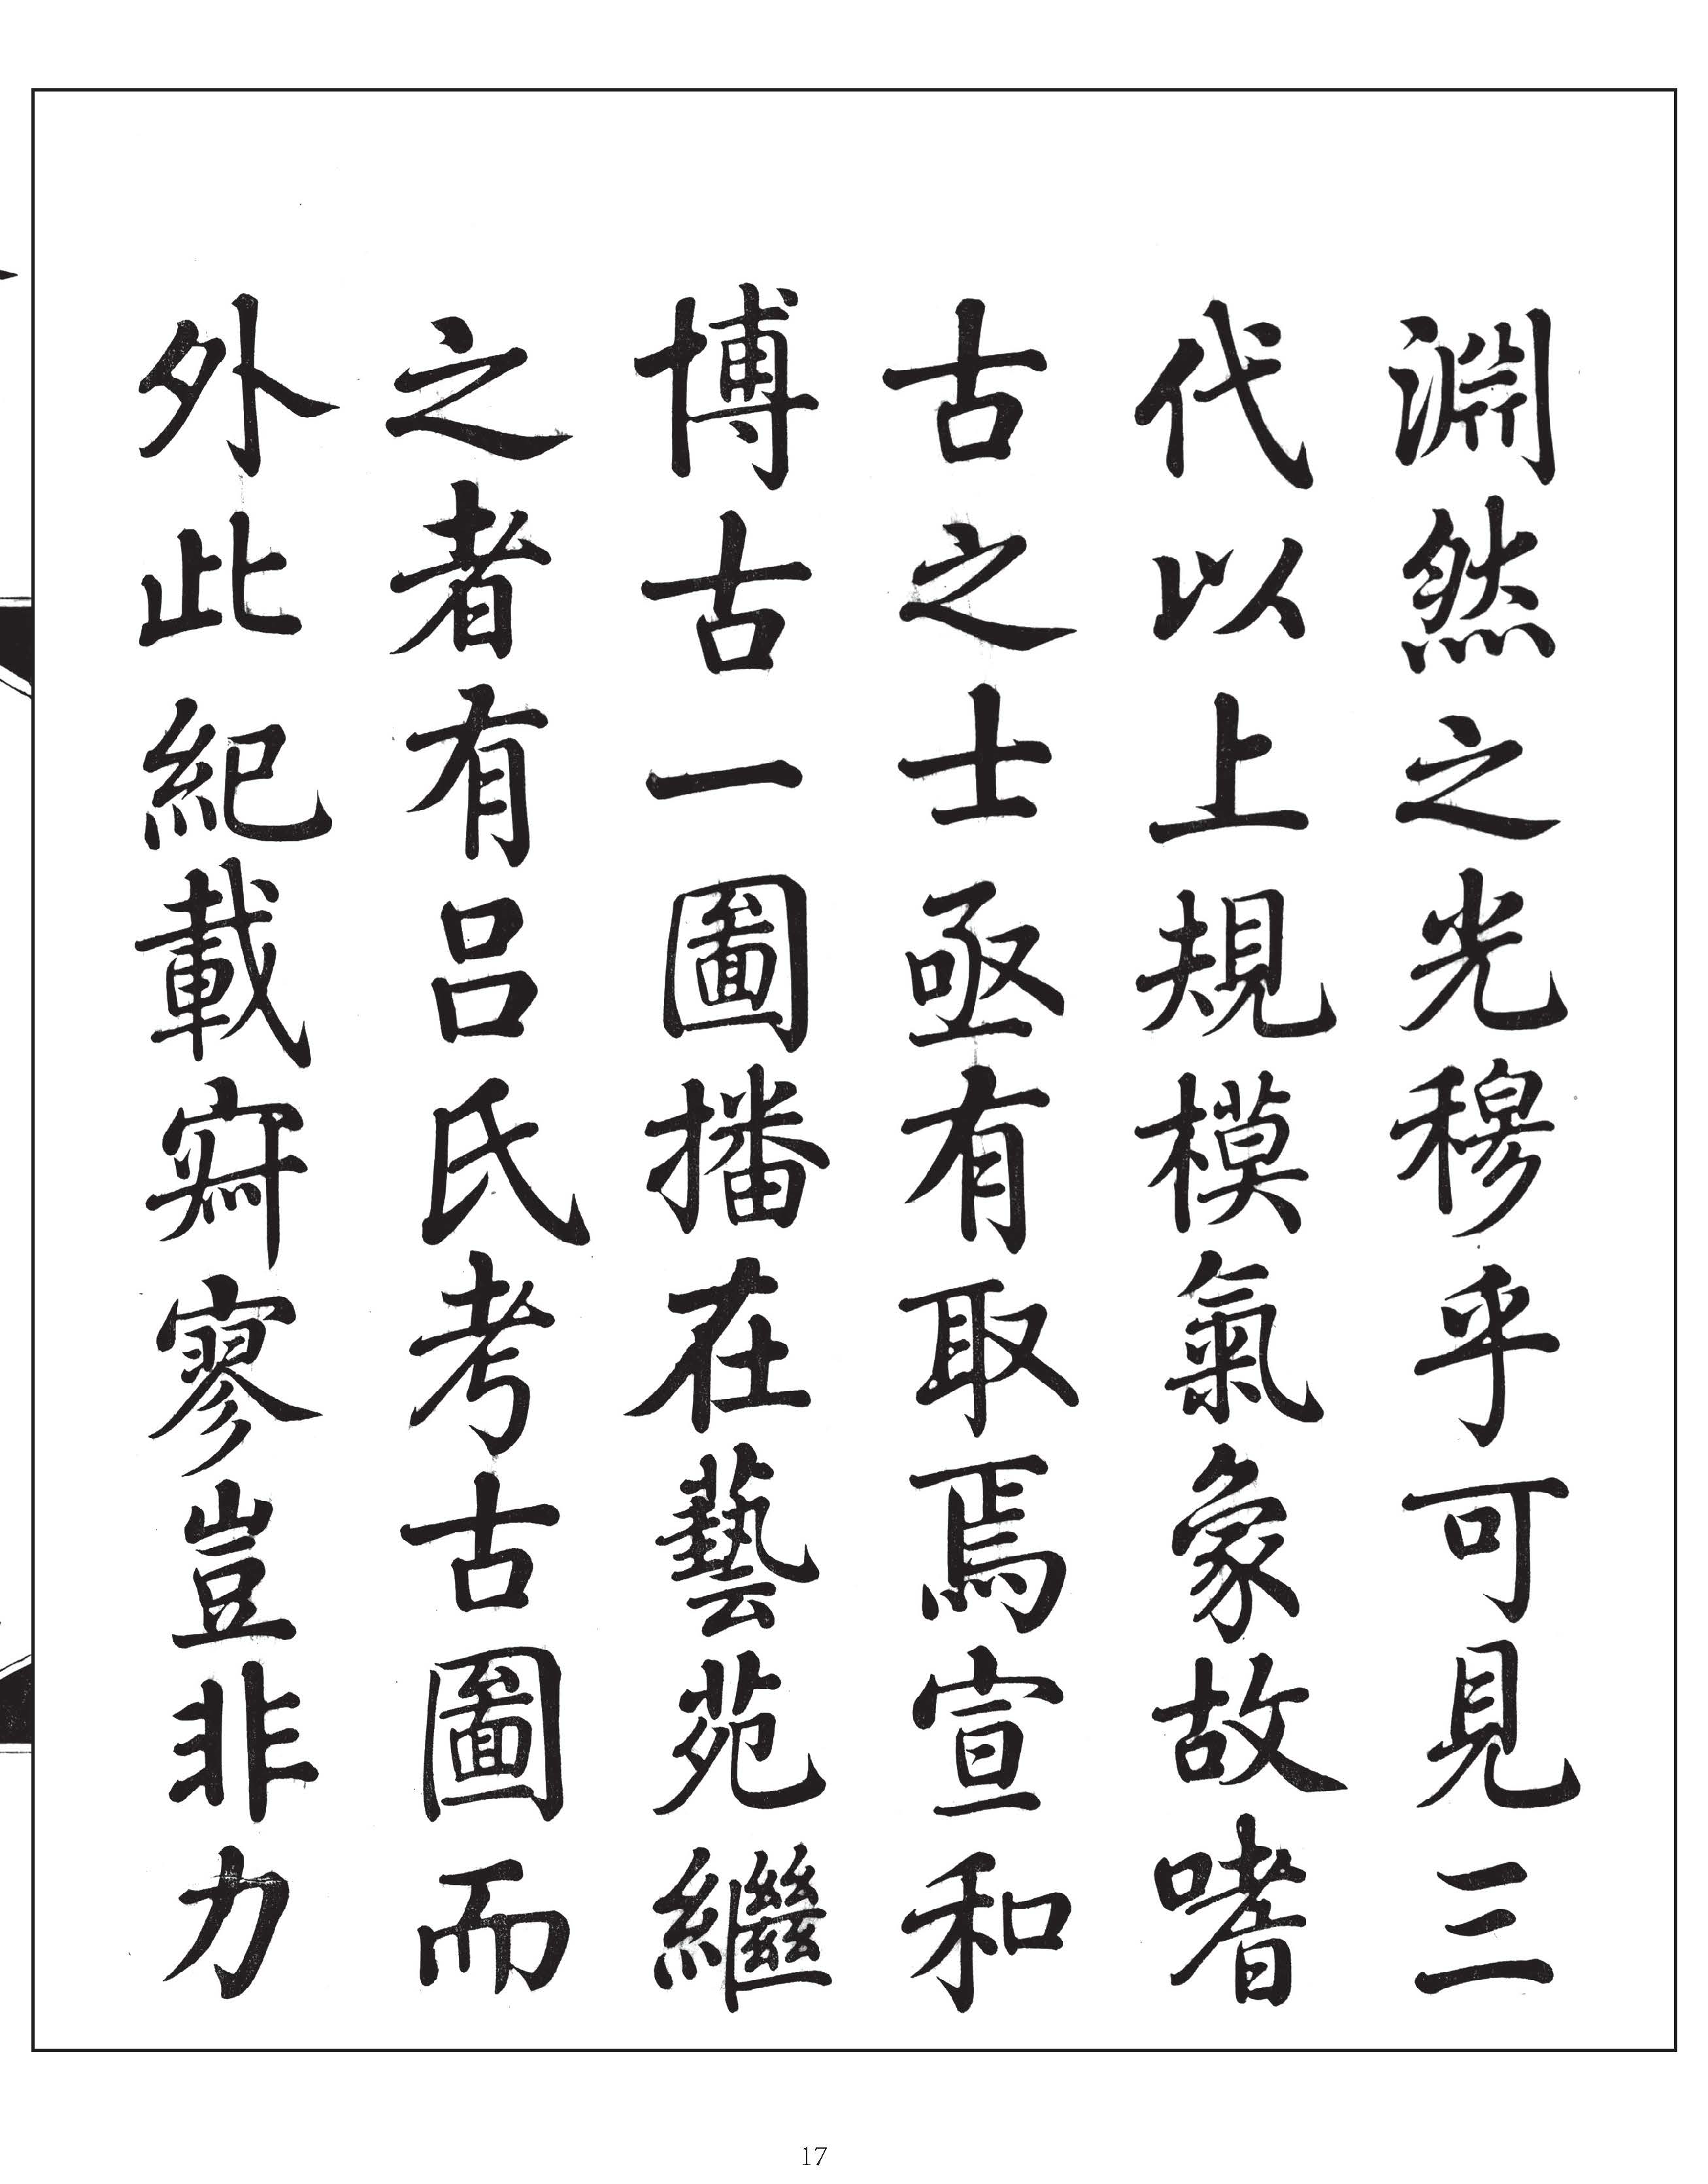 淵然之光穆乎可見三
代以上規模氣象故嗜
古之士亟有取焉宣和
博古一圖播在藝苑繼
之者有呂氏考古圖而
外此紀載寂寥豈非力
17